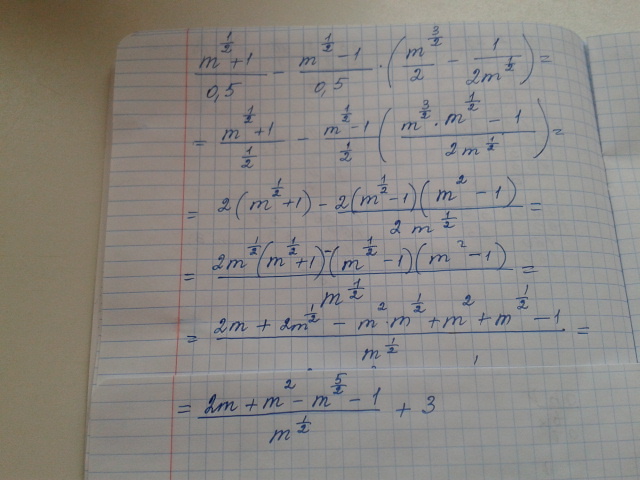 (m^(1/2) + 1)/0,5 - (m^(1/2) - 1)/0,5 · (m^(3/2)/2 - 1/(2m^(1/2))) =
= (m^(1/2) + 1)/(1/2) - (m^(1/2) - 1)/(1/2) ((m^(3/2) · m^(1/2) - 1)/(2m^(1/2))) =
= 2(m^(1/2) + 1) - (2(m^(1/2) - 1)(m^2 - 1))/(2m^(1/2)) =
= (2m^(1/2)(m^(1/2) + 1) - (m^(1/2) - 1)(m^2 - 1))/m^(1/2) =
= (2m + 2m^(1/2) - m^2 · m^(1/2) + m^2 + m^(1/2) - 1)/m^(1/2) =
= (2m + m^2 - m^(5/2) - 1)/m^(1/2) + 3